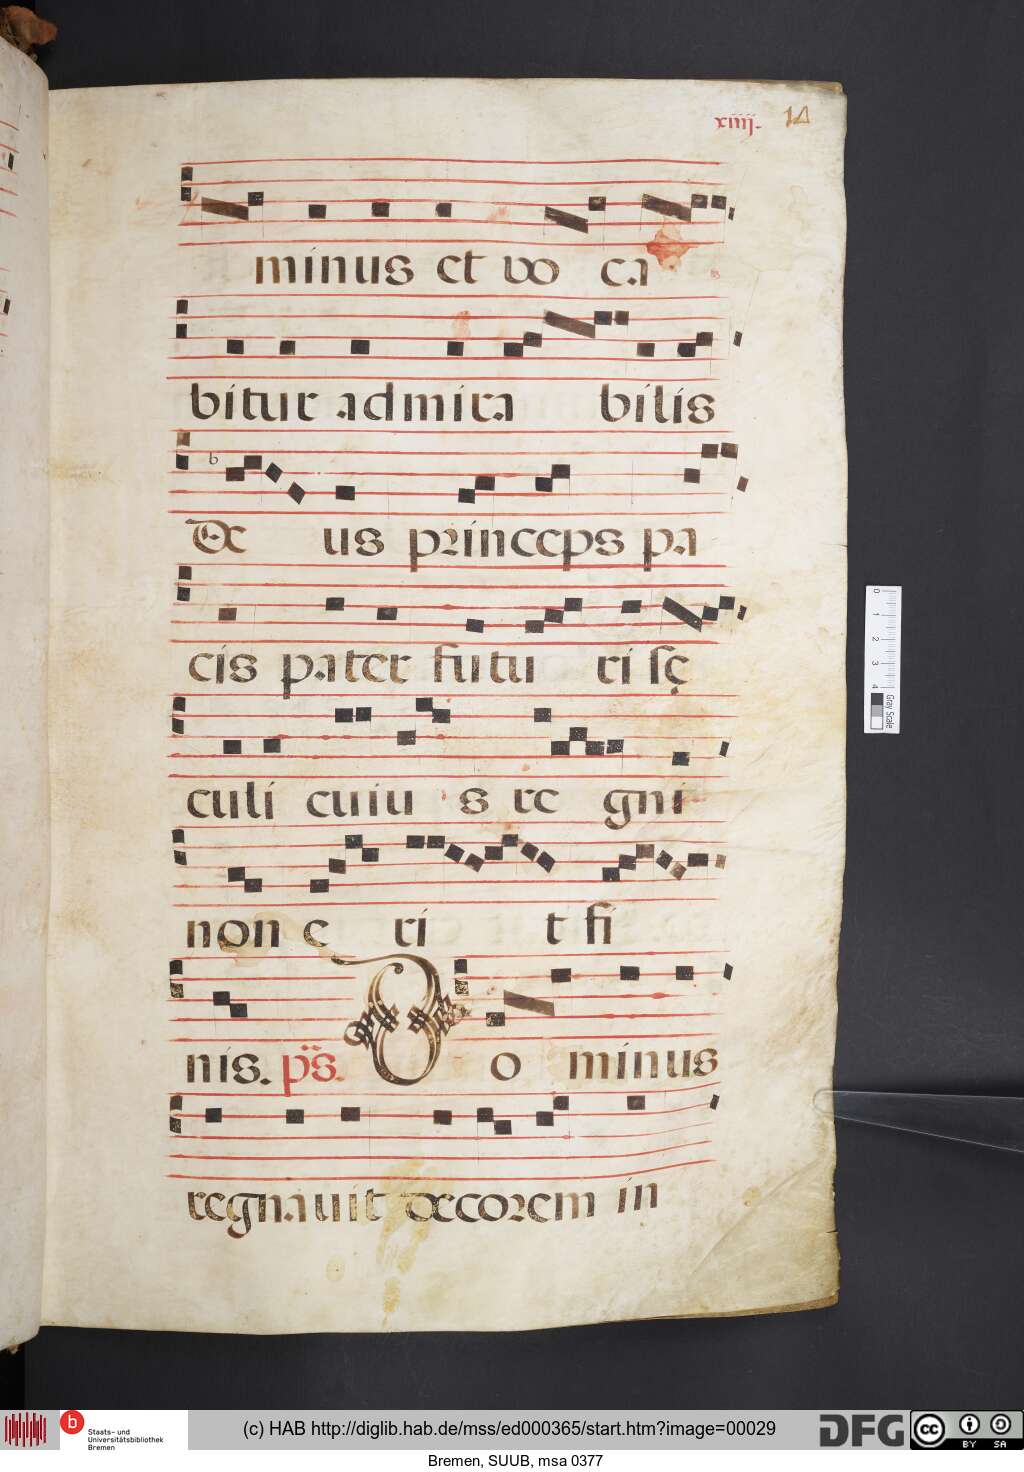 xiiij. 14
minus et vo ca
bitur admira bilis
De us princeps pa
cis pater futu ri sę
culi cuiu s re gni
non e ri t fi
nis. ps. D o minus
regnauit decorem in
0 1 2 3 4
Gray Scale
b Staats- und
Universitätsbibliothek
Bremen
(c) HAB http://diglib.hab.de/mss/ed000365/start.htm?image=00029
DFG
cc BY SA
Bremen, SUUB, msa 0377